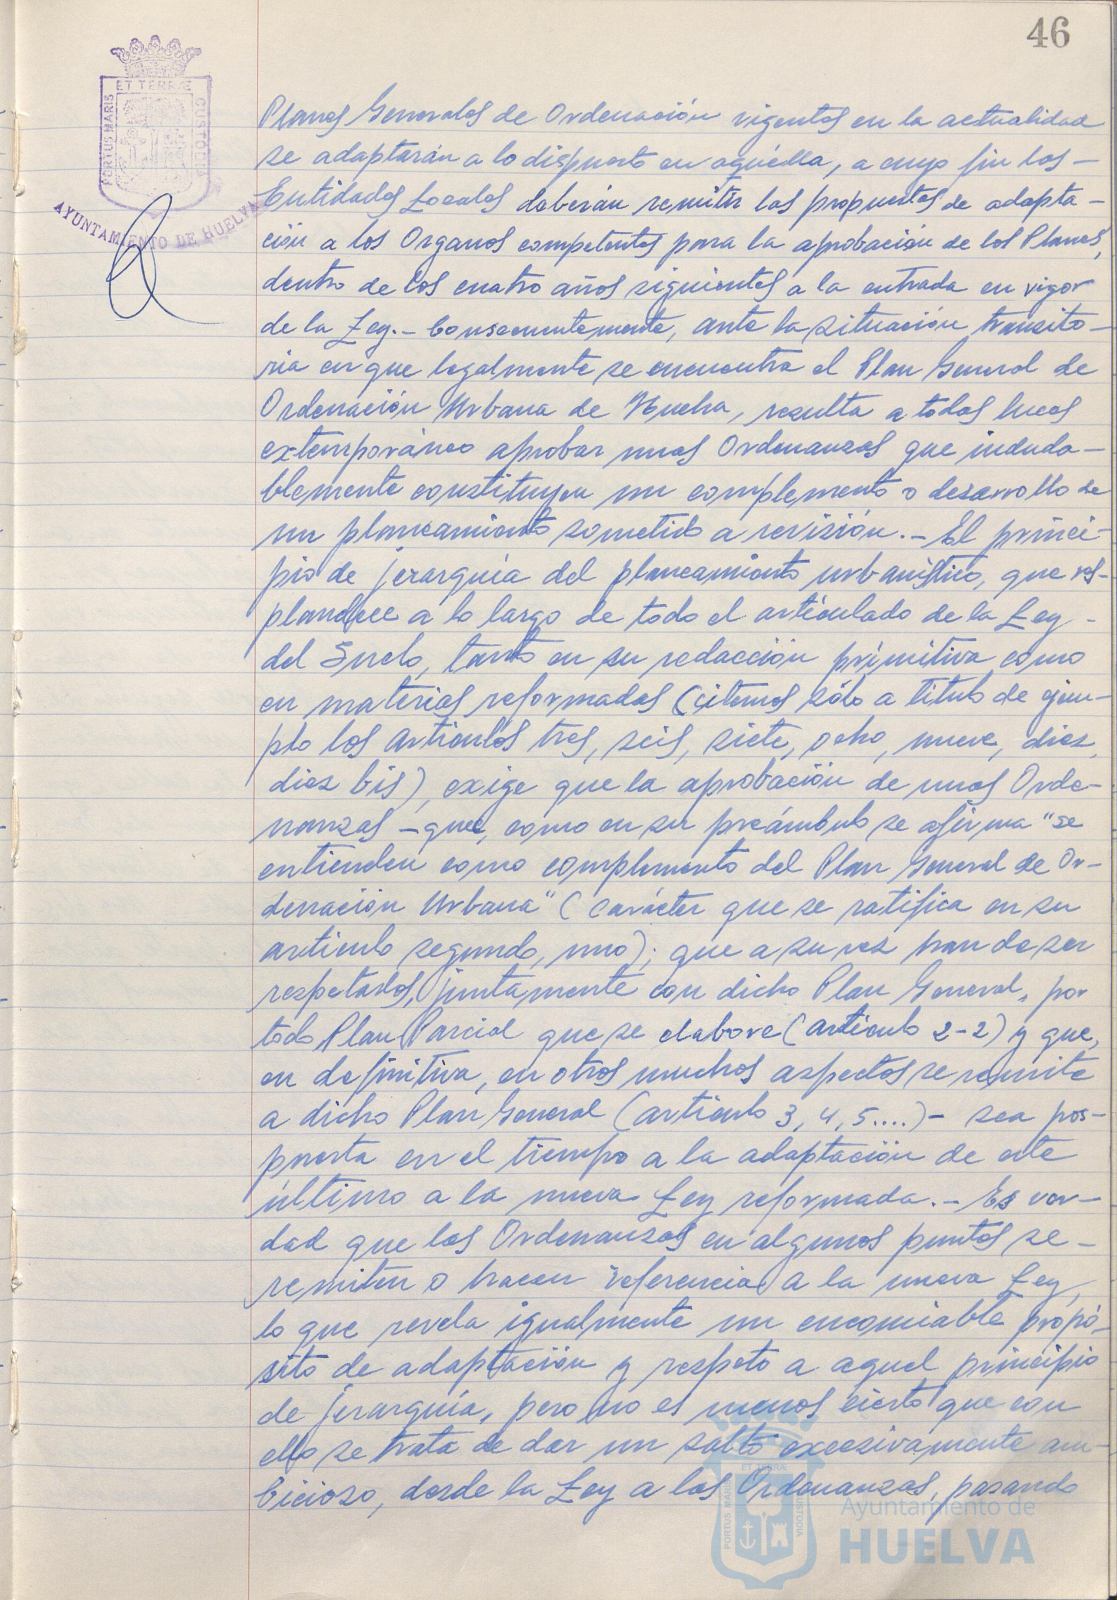 46
ET TERRÆ
PORTUS MARIS
CUSTODIA
AYUNTAMIENTO DE HUELVA
Planes Generales de Ordenación vigentes en la actualidad
se adaptarán a lo dispuesto en aquélla, a cuyo fin las -
Entidades Locales deberán remitir las propuestas de adapta-
ción a los Organos competentes para la aprobación de los Planes,
dentro de los cuatro años siguientes a la entrada en vigor
de la Ley.- Consecuentemente, ante la situación transito-
ria en que legalmente se encuentra el Plan General de
Ordenación Urbana de Huelva, resulta a todas luces
extemporáneo aprobar unas Ordenanzas que induda-
blemente constituyen un complemento o desarrollo de
un planeamiento sometido a revisión.- El princi-
pio de jerarquía del planeamiento urbanístico, que res-
plandece a lo largo de todo el articulado de la Ley -
del Suelo, tanto en su redacción primitiva como
en materias reformadas (citemos sólo a título de ejem-
plo los artículos tres, seis, siete, ocho, nueve, diez,
diez bis), exige que la aprobación de unas Orde-
nanzas -que, como en su preámbulo se afirma "se
entienden como complemento del Plan General de Or-
denación Urbana" (carácter que se ratifica en su
artículo segundo, uno); que a su vez han de ser
respetadas, juntamente con dicho Plan General, por
todo Plan Parcial que se elabore (artículo 2-2) y que,
en definitiva, en otros muchos aspectos se remite
a dicho Plan General (artículo 3, 4, 5....)- sea pos-
puesta en el tiempo a la adaptación de este
último a la nueva Ley reformada.- Es ver-
dad que las Ordenanzas en algunos puntos se -
remiten o hacen referencia a la nueva Ley,
lo que revela igualmente un encomiable propó-
sito de adaptación y respeto a aquel principio
de jerarquía, pero no es menos cierto que con
ello se trata de dar un salto excesivamente am-
bicioso, desde la Ley a las Ordenanzas, pasando
ET TERRÆ
PORTUS MARIS
CUSTODIA
Ayuntamiento de
HUELVA